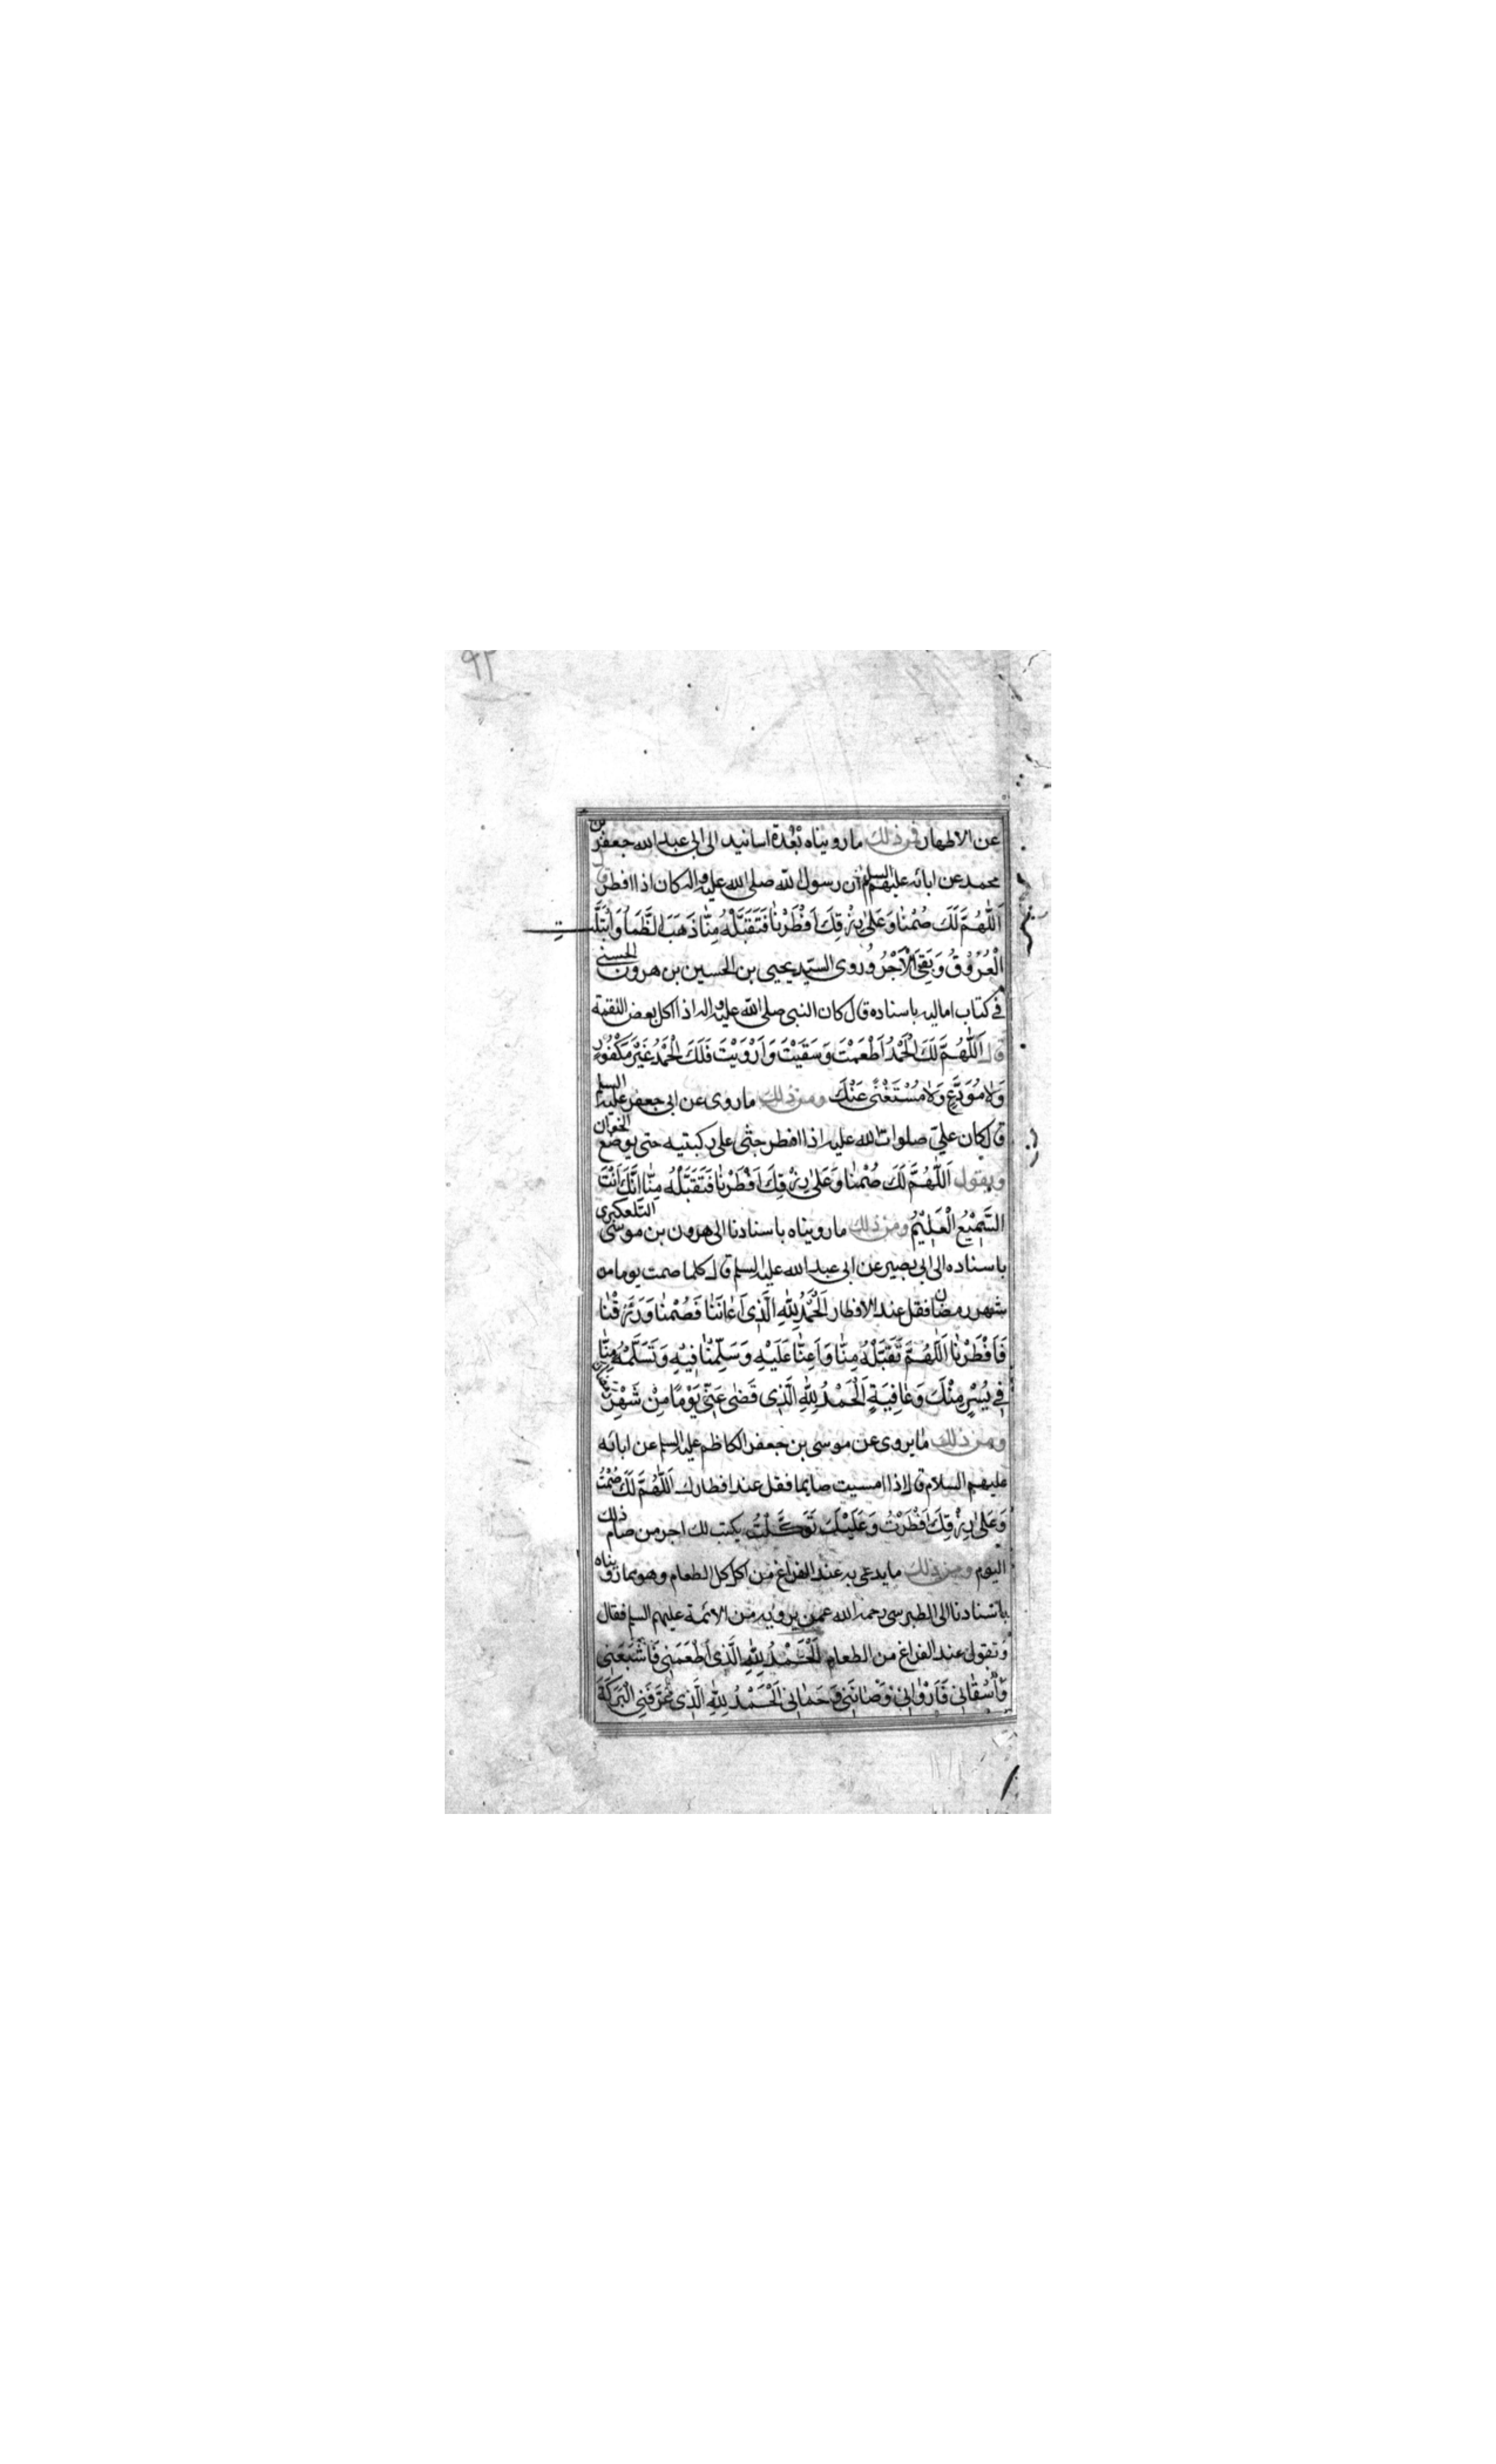 ٩٢
عن الاطهار فمن ذلك ما رويناه بعدة اسانيد الى ابى عبد الله جعفر بن
محمد عن ابائه عليهم السلم ان رسول الله صلى الله عليه واله كان اذا افطر ق
اَللّٰهُمَّ لَكَ صُمْنٰا وَعَلىٰ رِزْقِكَ اَفْطَرْنٰا فَتَقَبَّلْهُ مِنّٰا ذَهَبَ الظَّمَأُ وَابْتَلَّتِ
الْعُرُوقُ وَبَقِيَ الْاَجْرُ وروى السيد يحيى بن الحسين بن هرون الحسنى
فى كتاب اماليه باسناده قال كان النبى صلى الله عليه واله اذا اكل بعض اللقمة
قال اَللّٰهُمَّ لَكَ الْحَمْدُ اَطْعَمْتَ وَسَقَيْتَ وَاَرْوَيْتَ فَلَكَ الْحَمْدُ غَيْرَ مَكْفُورٍ
وَلٰا مُوَدَّعٍ وَلٰا مُسْتَغْنًى عَنْكَ ومن ذلك ما روى عن ابى جعفر عليه السلم
قال كان علي صلوات الله عليه اذا افطر جثى على ركبتيه حتى يوضع الخوان
ويقول اَللّٰهُمَّ لَكَ صُمْنٰا وَعَلىٰ رِزْقِكَ اَفْطَرْنٰا فَتَقَبَّلْهُ مِنّٰا اِنَّكَ اَنْتَ
السَّمِيْعُ الْعَلِيْمُ ومن ذلك ما رويناه باسنادنا الى هرون بن موسى التلعكبرى
باسناده الى ابى بصير عن ابى عبد الله عليه السلم قال كلما صمت يوما من
شهر رمضان فقل عند الافطار اَلْحَمْدُ لِلّٰهِ الَّذِى اَعٰانَنٰا فَصُمْنٰا وَرَزَقَنٰا
فَاَفْطَرْنٰا اَللّٰهُمَّ تَقَبَّلْهُ مِنّٰا وَاَعِنّٰا عَلَيْهِ وَسَلِّمْنٰا فِيْهِ وَتَسَلَّمْهُ مِنّٰا
فِى يُسْرٍ مِنْكَ وَعٰافِيَةٍ اَلْحَمْدُ لِلّٰهِ الَّذِى قَضٰى عَنِّى يَوْمًا مِنْ شَهْرِ رمضان
ومن ذلك ما يروى عن موسى بن جعفر الكاظم عليه السلم عن ابائه
عليهم السلام قال اذا امسيت صايما فقل عند افطارك اَللّٰهُمَّ لَكَ صُمْتُ
وَعَلىٰ رِزْقِكَ اَفْطَرْتُ وَعَلَيْكَ تَوَكَّلْتُ يكتب لك اجر من صام ذلك
اليوم ومن ذلك ما يدعى به عند الفراغ من اكل الطعام وهو مما رويناه
باسنادنا الى الطبرسى رحمه الله عمن يرويه من الائمة عليهم السلم فقال
وتقول عند الفراغ من الطعام اَلْحَمْدُ لِلّٰهِ الَّذِى اَطْعَمَنِى فَاَشْبَعَنِى
وَاَسْقٰانِى فَاَرْوٰانِى وَصٰانَنِى وَحَمٰانِى اَلْحَمْدُ لِلّٰهِ الَّذِى عَرَّفَنِى الْبَرَكَةَ